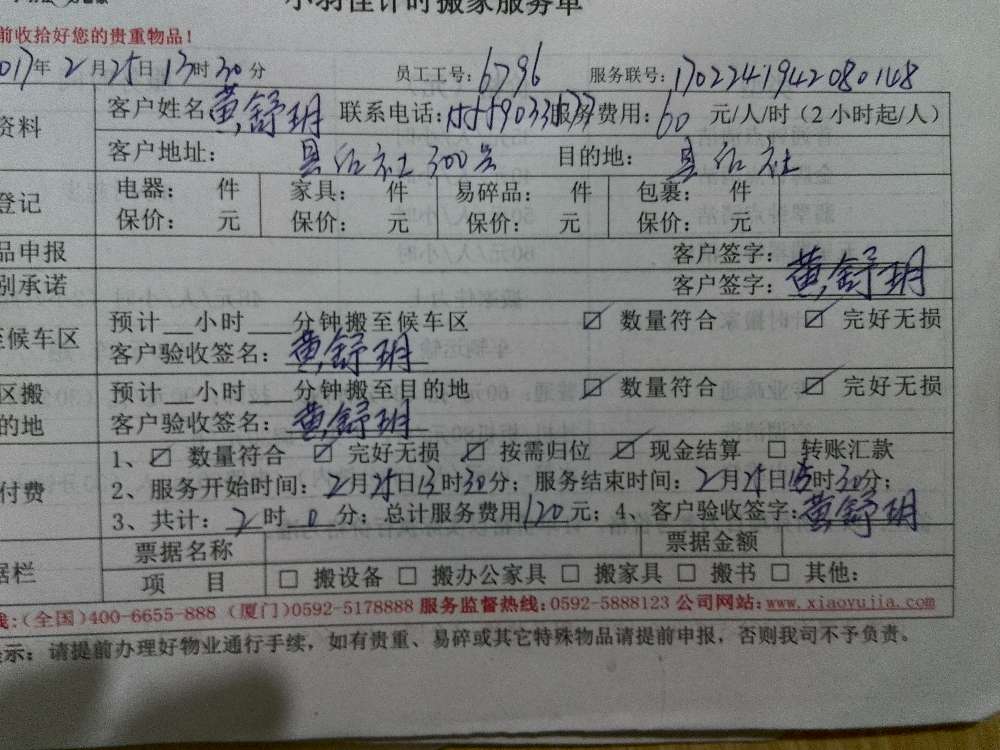 小羽佳计时搬家服务单
前收拾好您的贵重物品!
017年2月25日13时30分 员工工号:6796 服务联号:1702241942080148
资料 客户姓名 黄舒玥 联系电话: 服务费用:60 元/人/时(2小时起/人)
客户地址: 300号 目的地:
登记 电器: 件 家具: 件 易碎品: 件 包裹: 件
保价: 元 保价: 元 保价: 元 保价: 元
品申报 客户签字:
别承诺 客户签字:黄舒玥
至候车区 预计__小时___分钟搬至候车区 ☑ 数量符合 ☑ 完好无损
客户验收签名:黄舒玥
区搬 预计__小时___分钟搬至目的地 ☑ 数量符合 ☑ 完好无损
的地 客户验收签名:黄舒玥
1、☑ 数量符合 ☑ 完好无损 ☑ 按需归位 ☑ 现金结算 □ 转账汇款
付费 2、服务开始时间:2月25日13时30分;服务结束时间:2月25日15时30分;
3、共计:2时0分;总计服务费用120元;4、客户验收签字:黄舒玥
据栏 票据名称 票据金额
项 目 □ 搬设备 □ 搬办公家具 □ 搬家具 □ 搬书 □ 其他:
线:(全国)400-6655-888 (厦门)0592-5178888 服务监督热线:0592-5888123 公司网站:www.xiaoyujia.com
示:请提前办理好物业通行手续,如有贵重、易碎或其它特殊物品请提前申报,否则我司不予负责。